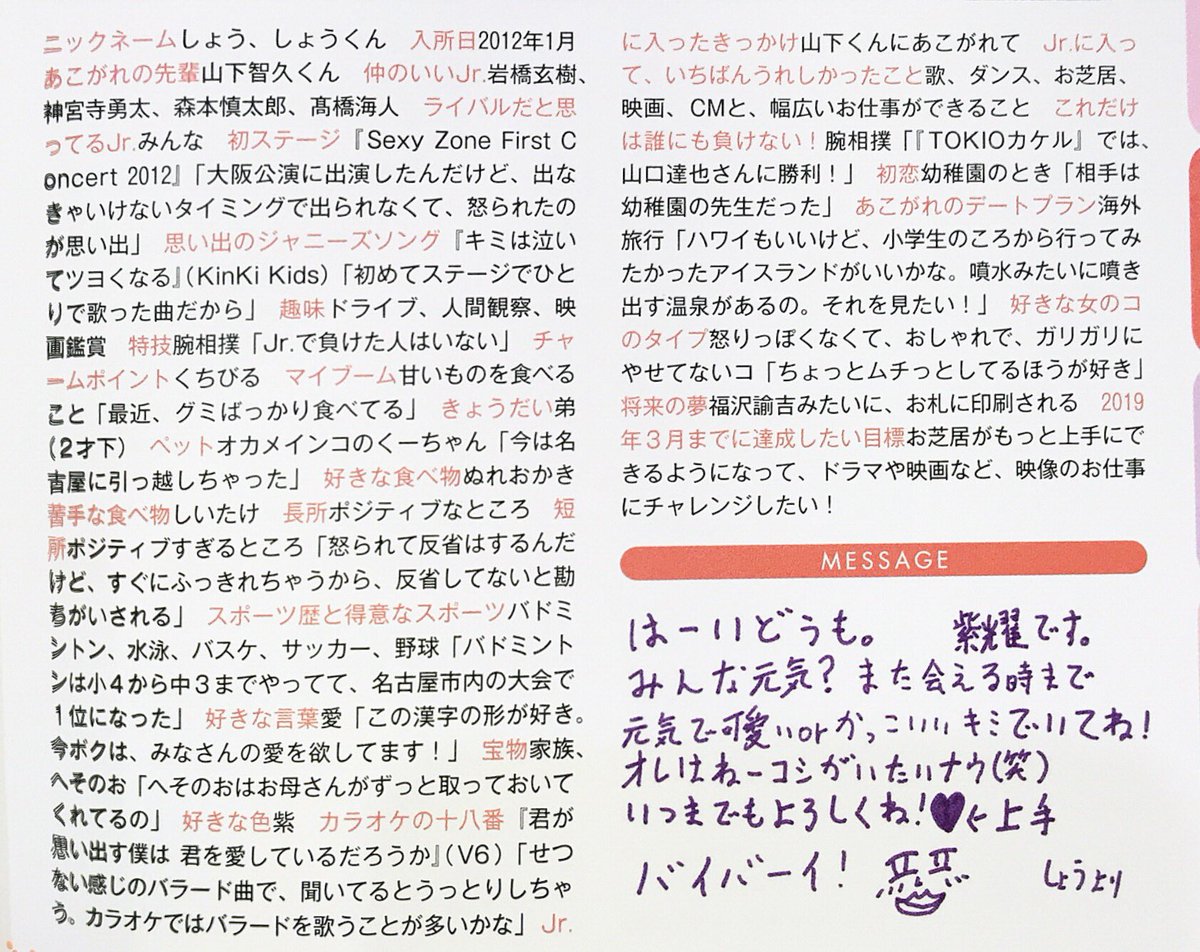 ニックネームしょう、しょうくん　入所日2012年1月
あこがれの先輩山下智久くん　仲のいいJr.岩橋玄樹、
神宮寺勇太、森本慎太郎、髙橋海人　ライバルだと思
ってるJr.みんな　初ステージ『Sexy Zone First C
oncert 2012』「大阪公演に出演したんだけど、出な
きゃいけないタイミングで出られなくて、怒られたの
が思い出」　思い出のジャニーズソング『キミは泣い
てツヨくなる』（KinKi Kids）「初めてステージでひと
りで歌った曲だから」　趣味ドライブ、人間観察、映
画鑑賞　特技腕相撲「Jr.で負けた人はいない」　チャ
ームポイントくちびる　マイブーム甘いものを食べる
こと「最近、グミばっかり食べてる」　きょうだい弟
（2才下）　ペットオカメインコのくーちゃん「今は名
古屋に引っ越しちゃった」　好きな食べ物ぬれおかき
苦手な食べ物しいたけ　長所ポジティブなところ　短
所ポジティブすぎるところ「怒られて反省はするんだ
けど、すぐにふっきれちゃうから、反省してないと勘
ちがいされる」　スポーツ歴と得意なスポーツバドミ
ントン、水泳、バスケ、サッカー、野球「バドミント
ンは小4から中3までやってて、名古屋市内の大会で
1位になった」　好きな言葉愛「この漢字の形が好き。
今ボクは、みなさんの愛を欲してます！」　宝物家族、
へそのお「へそのおはお母さんがずっと取っておいて
くれてるの」　好きな色紫　カラオケの十八番『君が
思い出す僕は 君を愛しているだろうか』（V6）「せつ
ない感じのバラード曲で、聞いてるとうっとりしちゃ
う。カラオケではバラードを歌うことが多いかな」　Jr.
に入ったきっかけ山下くんにあこがれて　Jr.に入っ
て、いちばんうれしかったこと歌、ダンス、お芝居、
映画、CMと、幅広いお仕事ができること　これだけ
は誰にも負けない！腕相撲「『TOKIOカケル』では、
山口達也さんに勝利！」　初恋幼稚園のとき「相手は
幼稚園の先生だった」　あこがれのデートプラン海外
旅行「ハワイもいいけど、小学生のころから行ってみ
たかったアイスランドがいいかな。噴水みたいに噴き
出す温泉があるの。それを見たい！」　好きな女のコ
のタイプ怒りっぽくなくて、おしゃれで、ガリガリに
やせてないコ「ちょっとムチっとしてるほうが好き」
将来の夢福沢諭吉みたいに、お札に印刷される　2019
年3月までに達成したい目標お芝居がもっと上手にで
きるようになって、ドラマや映画など、映像のお仕事
にチャレンジしたい！
MESSAGE
はーいどうも。　紫耀です。
みんな元気？また会える時まで
元気で可愛いorかっこいいキミでいてね！
オレはねーコシがいたいナウ（笑）
いつまでもよろしくね！♥←上手
バイバーイ！　しょうより